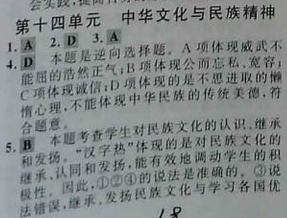 会实践,提高自身的
第十四单元 中华文化与民族精神
1. A 2. D 3. A
4. D 本题是逆向选择题。A项体现威武不
能屈的浩然正气;B项体现公而忘私、宽容;
C项体现诚信;D项体现的是不思进取的懒
惰心理,不能体现中华民族的传统美德,符
合题意。
5. B 本题考查学生对民族文化的认识、继承
和发扬。“汉字热”体现的是对民族文化的
继承、认同和发扬,能有效地调动学生的积
极性。因此,①②④的说法是准确的。③说
法错误,继承、发扬民族文化与学习各国优
18